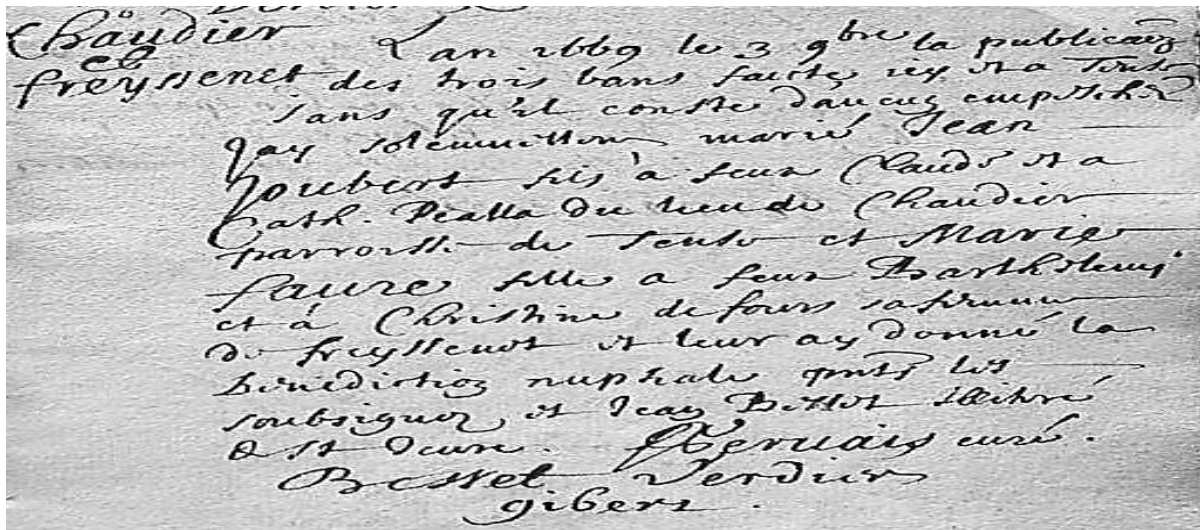 Chaudier
et
freyssenet
Lan 1669 le 3 9bre la publicaon
des trois bans faicte icy et a Tense
sans qu'il conste d'aucun empeschet
Jay solemnittem marié Jean
Joubert fils à feux Claude et a
Cath. Pealla du lieu de Chaudier
parroisse de Tense et Marie
faure fille a feux Barthelemy
et à Christine defours sa femme
de freyssenet et leur ay donné la
benediction nuptiale pnts les
soubsignez et Jean Bisset illitiré
de St Jeure. Gervais curé.
Besset Verdier
gibert.